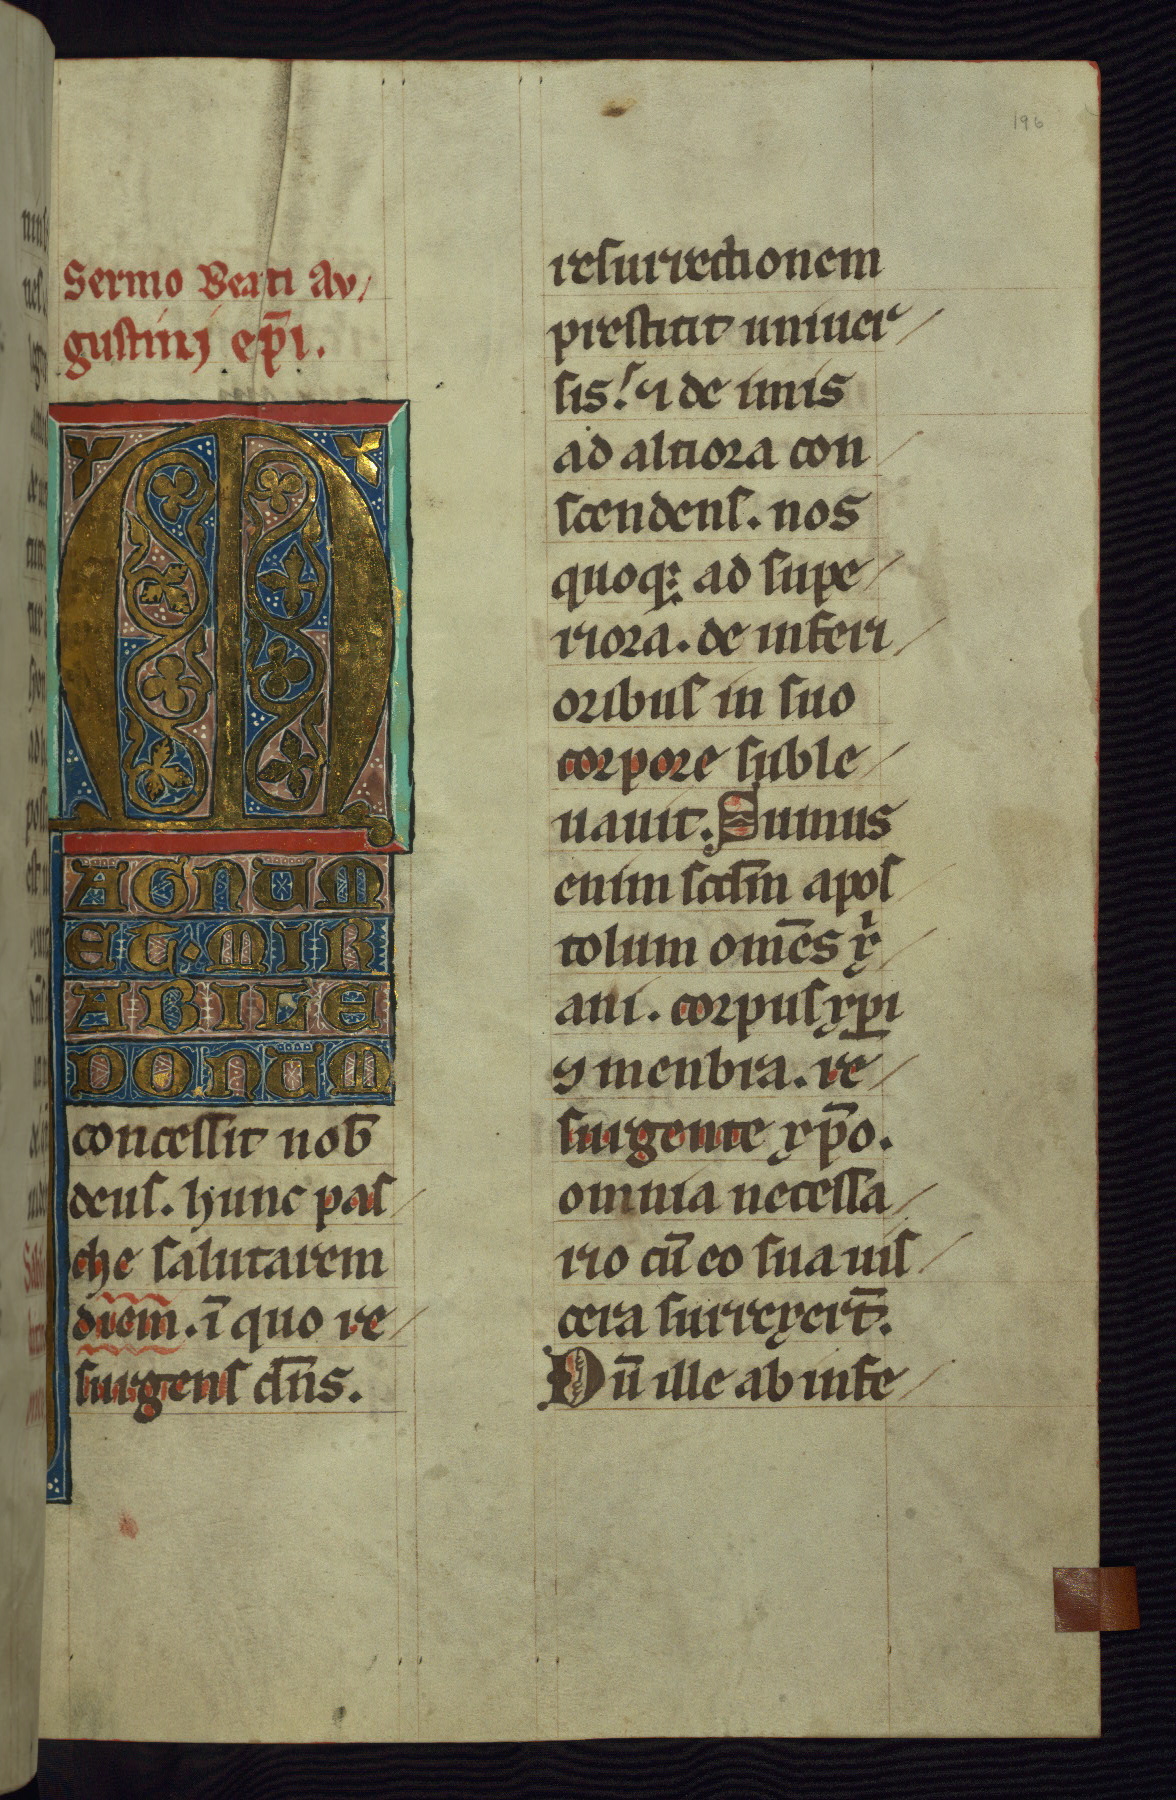 196
Sermo Beati Au/
gustinj ep̄i.
MAGNUM
ET·MIR
ABILE
DONUM
concessit nob̄
deus. hunc pas/
che salutarem
diem̄. ī quo re/
surgens dn̄s.
resurrectionem
prestitit univer/
sis! ⁊ de imis
ad altiora con/
scendens. nos
quoq; ad supe/
riora. de inferi/
oribus in suo
corpore suble/
uauit. Sumus
enim scd̄m apos/
tolum om̄es xͥ/
ani. corpus xp̄i
⁊ menbra. re/
surgente xp̄o.
omnia necessa/
rio cū eo sua uis/
cera surrexert̄.
Dū ille ab infe/